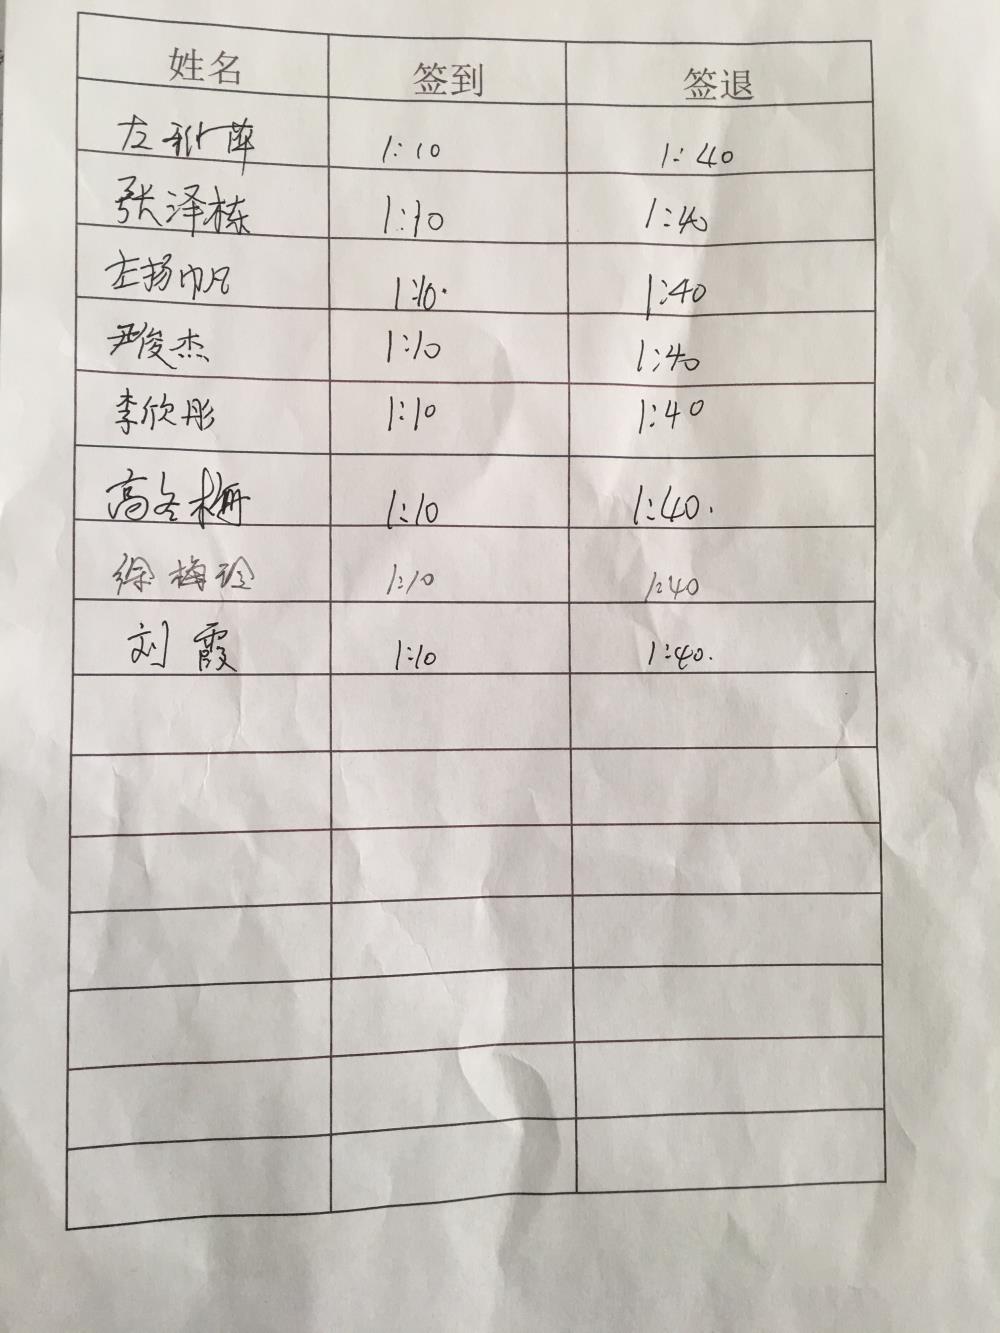 姓名 签到 签退
左 1:10 1:40
张泽栋 1:10 1:40
左扬帆 1:10. 1:40
尹俊杰 1:10 1:40
李欣彤 1:10 1:40
高冬梅 1:10 1:40.
徐梅玲 1:10 1:40
刘霞 1:10 1:40.